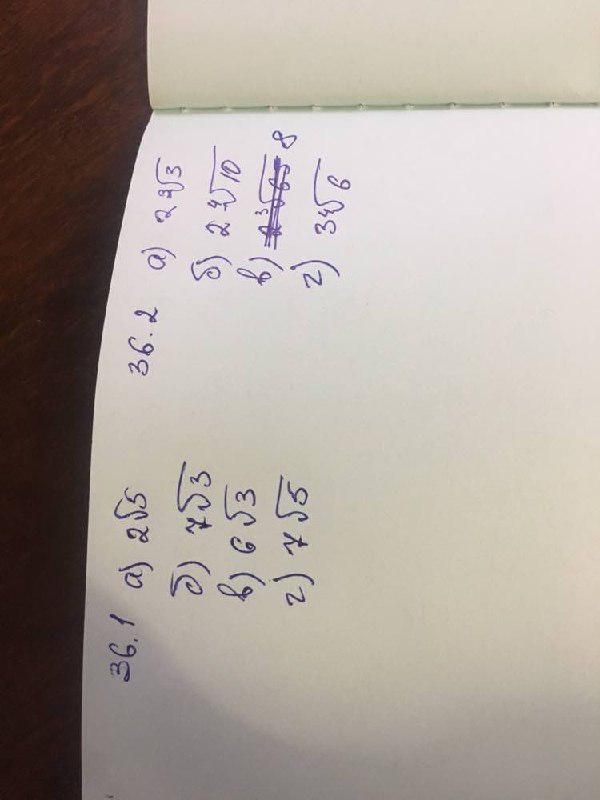 36.1 а) 2√5
б) 7√3
в) 6√3
г) 7√5
36.2 а) 2∛3
б) 2∜10
в) 8
г) 3∜6